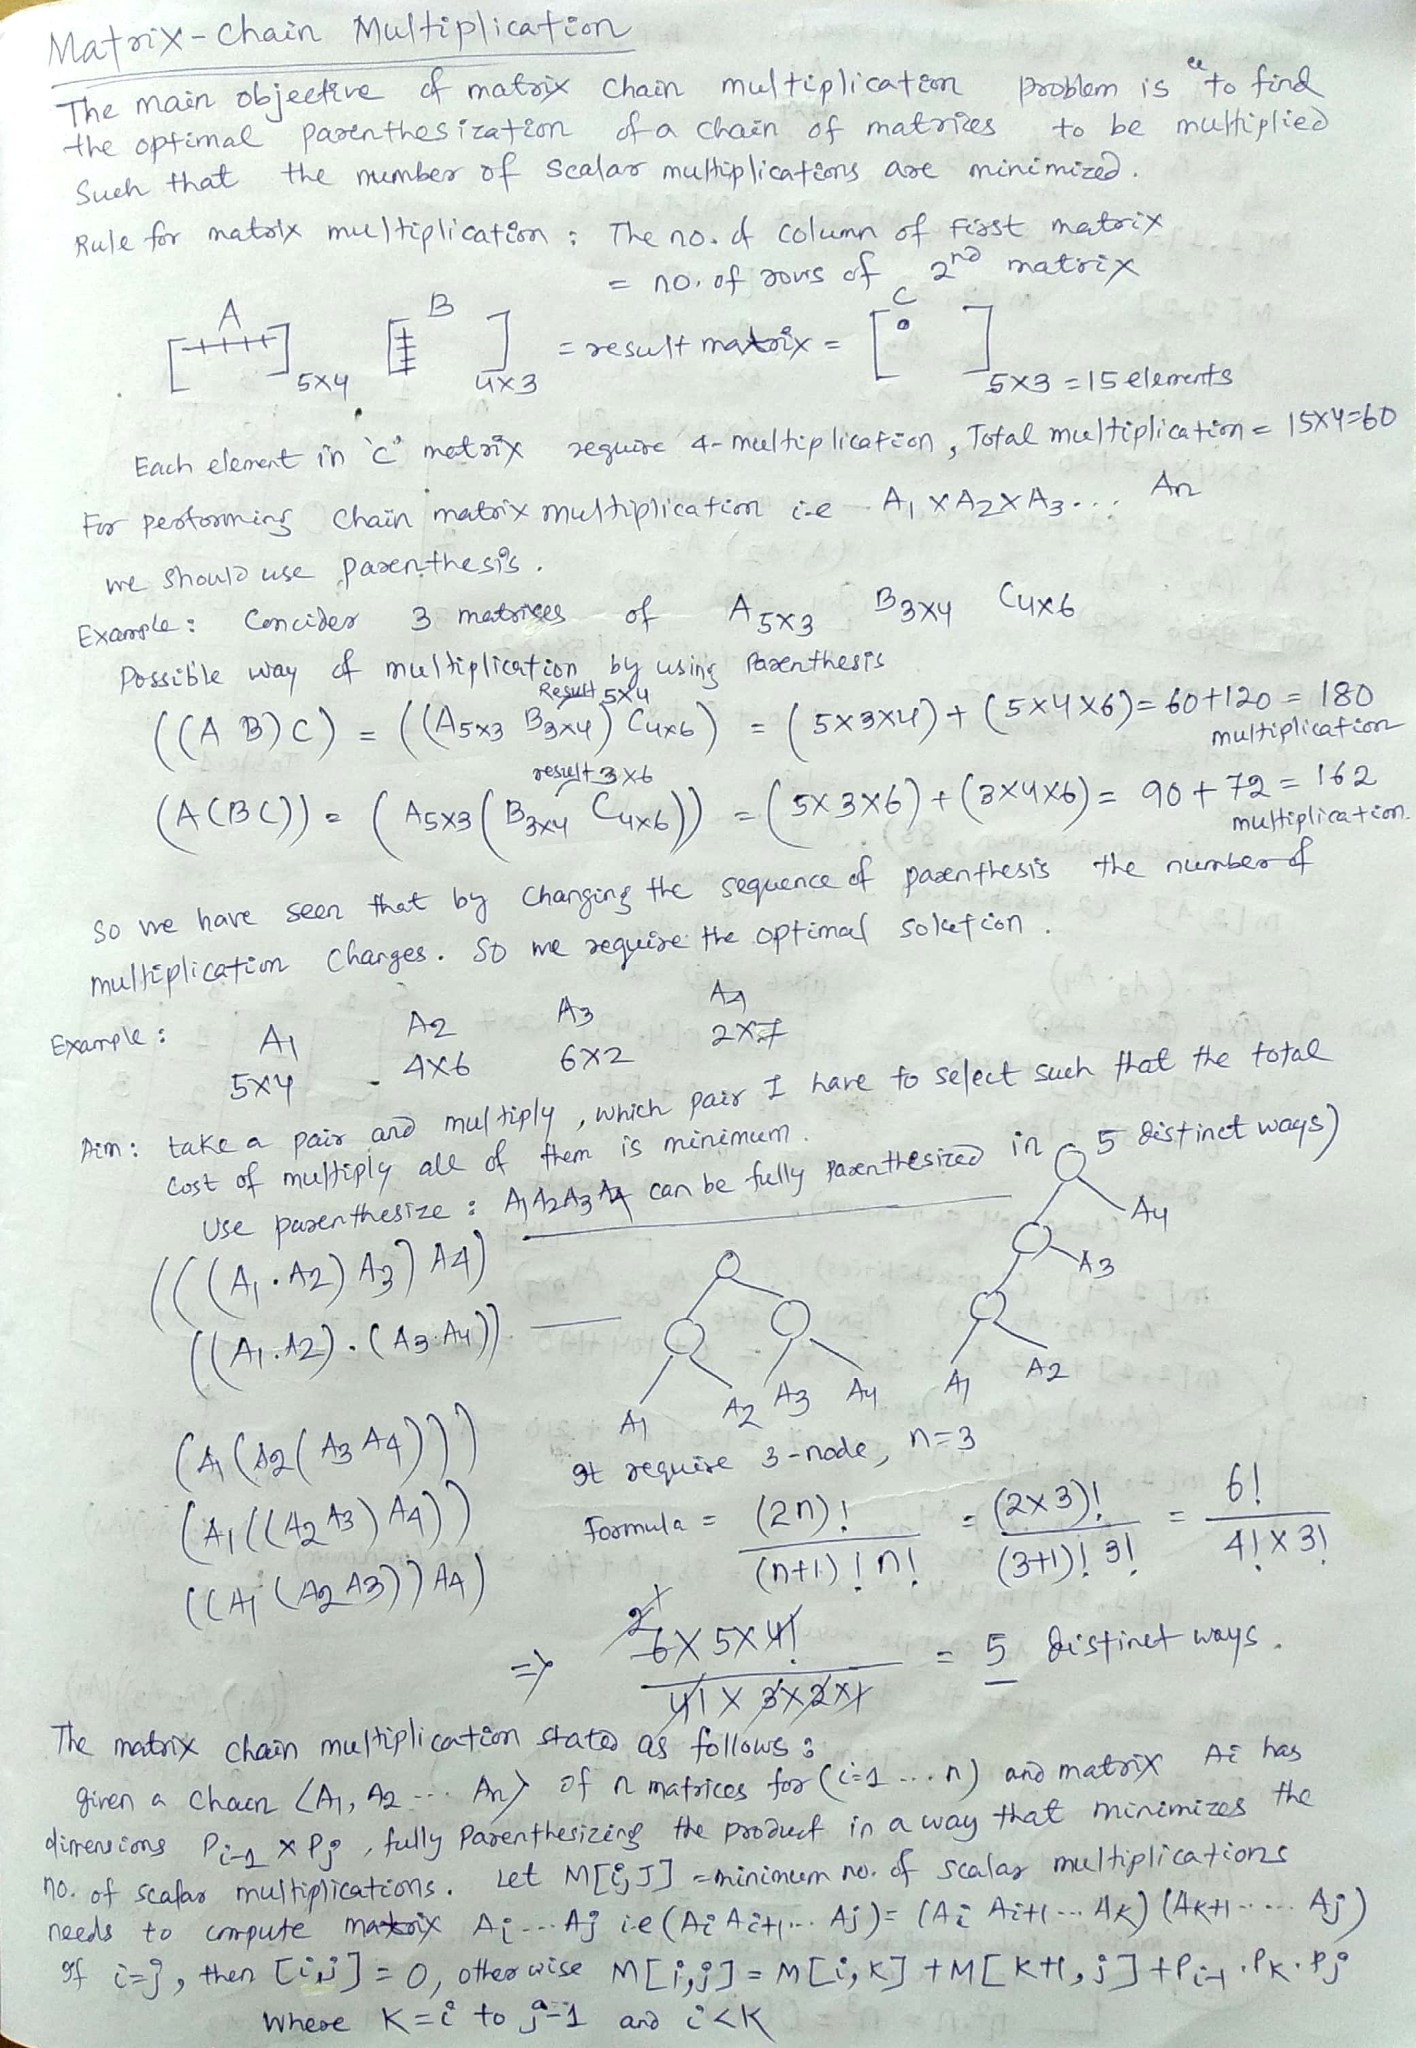 Matrix-Chain Multiplication
The main objective of matrix chain multiplication problem is "to find
the optimal parenthesization of a chain of matrices to be multiplied
Such that the number of scalar multiplications are minimized.
Rule for matrix multiplication : The no. of column of First matrix
= no. of rows of 2nd matrix
A B C
[ ]5x4 [ ]4x3 = result matrix = [ ]5x3 = 15 elements
Each element in 'c' matrix require 4-multiplication, Total multiplication = 15x4=60
For performing chain matrix multiplication i.e A1 x A2 x A3 ... An
we should use parenthesis.
Example : Concider 3 matrixes of A5x3 B3x4 C4x6
Possible way of multiplication by using Parenthesis
Result 5x4
((A B) C) = ((A5x3 B3x4) C4x6) = (5x3x4) + (5x4x6) = 60+120 = 180
multiplication
result 3x6
(A(BC)) = (A5x3 (B3x4 C4x6)) = (5x3x6) + (3x4x6) = 90 + 72 = 162
multiplication.
So we have seen that by changing the sequence of parenthesis the number of
multiplication changes. So we require the optimal solution.
Example : A1 A2 A3 A4
5x4 4x6 6x2 2x7
Aim : take a pair and multiply, which pair I have to select such that the total
cost of multiply all of them is minimum.
Use parenthesize : A1A2A3A4 can be fully parenthesized in 5 distinct ways)
(((A1.A2) A3) A4)
A4
A3
A1 A2
((A1.A2).(A3.A4))
A1 A2 A3 A4
(A1(A2(A3 A4)))
It require 3-node, n=3
(A1((A2 A3) A4))
Formula = (2n)! / (n+1)! n! = (2x3)! / (3+1)! 3! = 6! / 4! x 3!
((A1(A2 A3)) A4)
=> 6x5x4! / 4! x 3x2x1 = 5 distinct ways.
The matrix chain multiplication stated as follows :
given a chain <A1, A2 ... An> of n matrices for (i=1 ... n) and matrix Ai has
dimensions Pi-1 x Pj, fully Parenthesizing the product in a way that minimizes the
no. of scalar multiplications. Let M[i,J] = minimum no. of scalar multiplications
needs to compute matrix Ai ... Aj i.e (Ai Ai+1 ... Aj) = (Ai Ai+1 ... Ak) (Ak+1 ...... Aj)
If i=j, then [i,j] = 0, otherwise M[i,j] = M[i,k] + M[k+1,j] + Pi-1 . Pk . Pj
Where K = i to j-1 and i<k